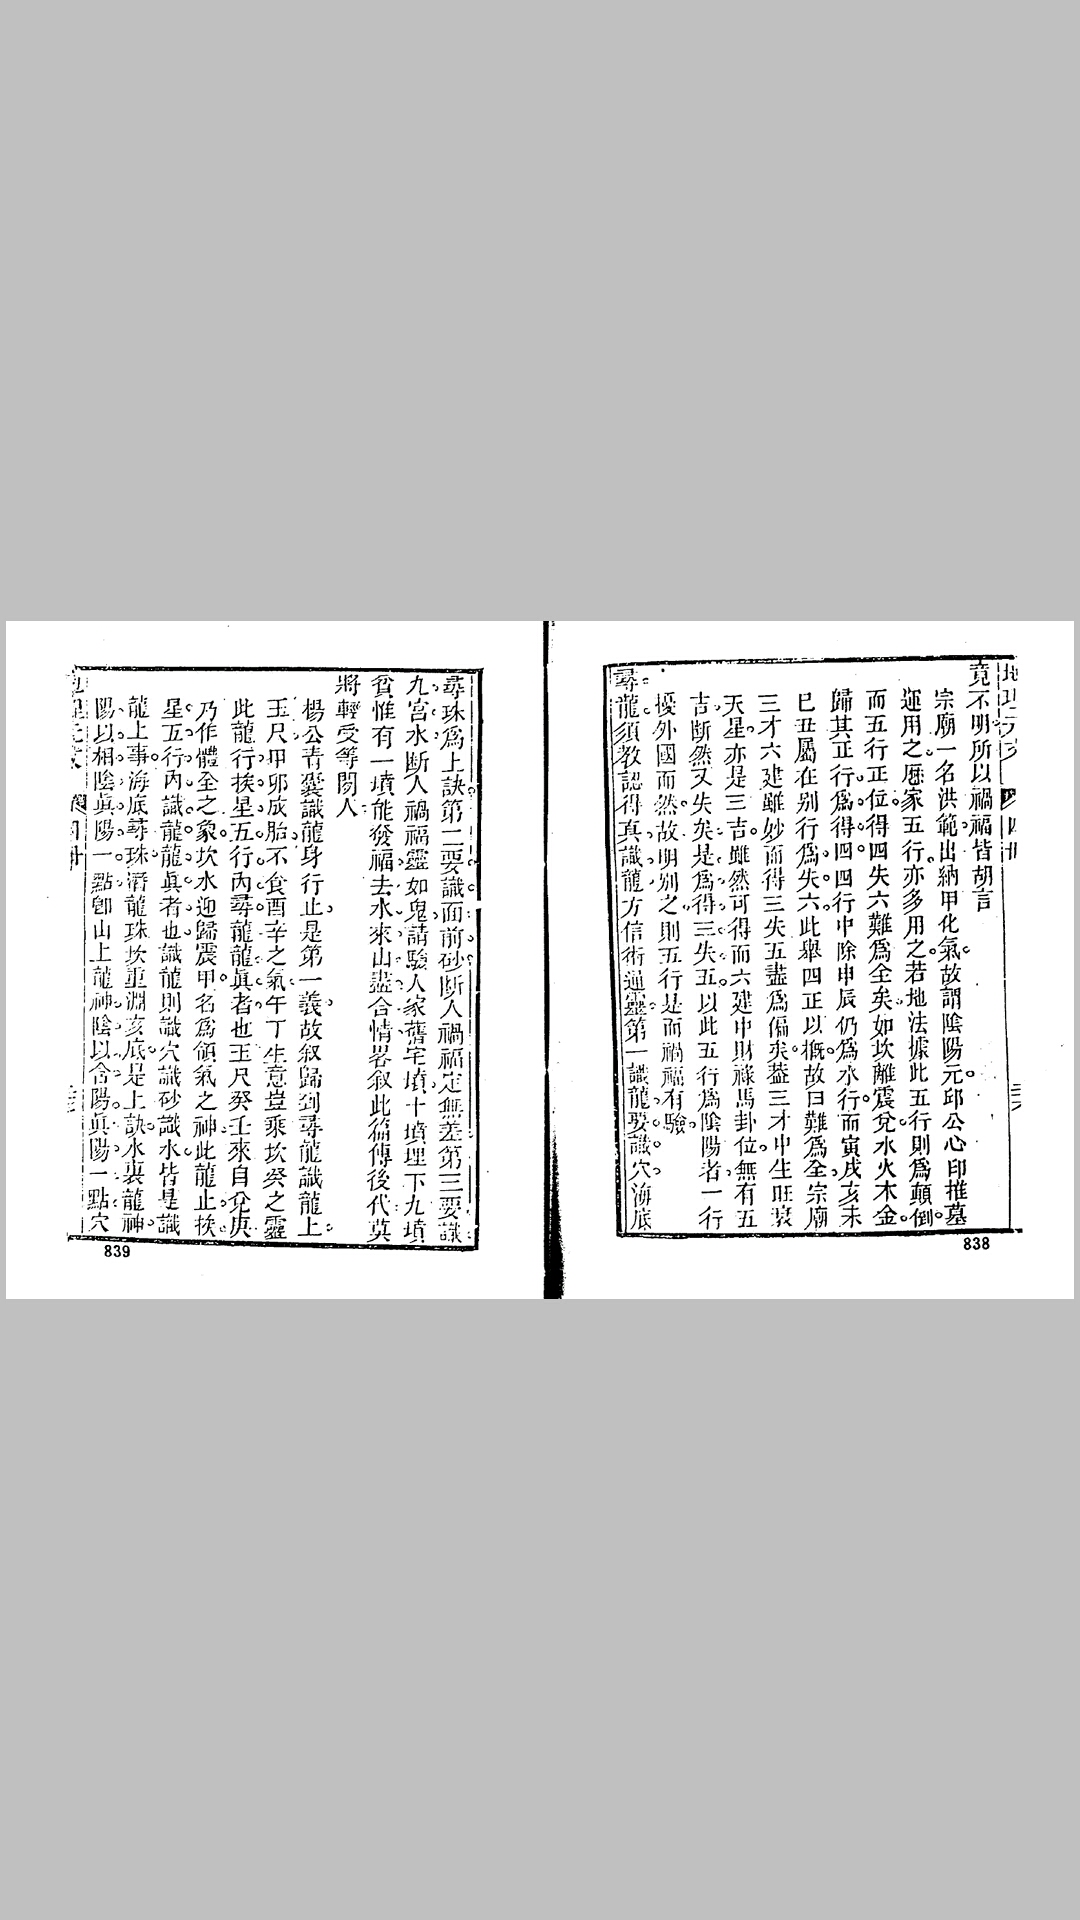 竟不明所以禍福皆胡言
宗廟一名洪範出納甲化氣故謂陰陽元邱公心印推墓
運用之曆家五行亦多用之若地法據此五行則爲顛倒
而五行正位得四失六難爲全矣如坎離震兌水火木金
歸其正行爲得四四行中除申辰仍爲水行而寅戌亥未
巳丑屬在别行爲失六此舉四正以概故曰難爲全宗廟
三才六建雖妙而得三失五盡爲偏矣葢三才中生旺衰
天星亦是三吉雖然可得而六建中財祿馬卦位無有五
吉斷然又失矣是爲得三失五以此五行爲陰陽者一行
擾外國而然故明别之則五行是而禍福有驗
尋龍須教認得真識龍方信術通靈第一識龍要識穴海底
838
尋珠爲上訣第二要識面前砂斷人禍福定無差第三要識
九宮水斷人禍福靈如鬼請驗人家舊宅墳十墳埋下九墳
貧惟有一墳能發福去水來山盡合情畧叙此篇傳後代莫
將輕受等閒人
楊公青囊識龍身行止是第一義故叙歸到尋龍識龍上
玉尺甲卯成胎不食酉辛之氣午丁生意豈乘坎癸之靈
此龍行挨星五行內尋龍龍眞者也玉尺癸壬來自兌庚
乃作體全之象坎水迎歸震甲名爲領氣之神此龍止挨
星五行內識龍龍眞者也識龍則識穴識砂識水皆是識
龍上事海底尋珠潛龍珠坎重淵亥底是上訣水裏龍神
陽以相陰眞陽一點卽山上龍神陰以含陽眞陽一點穴
839